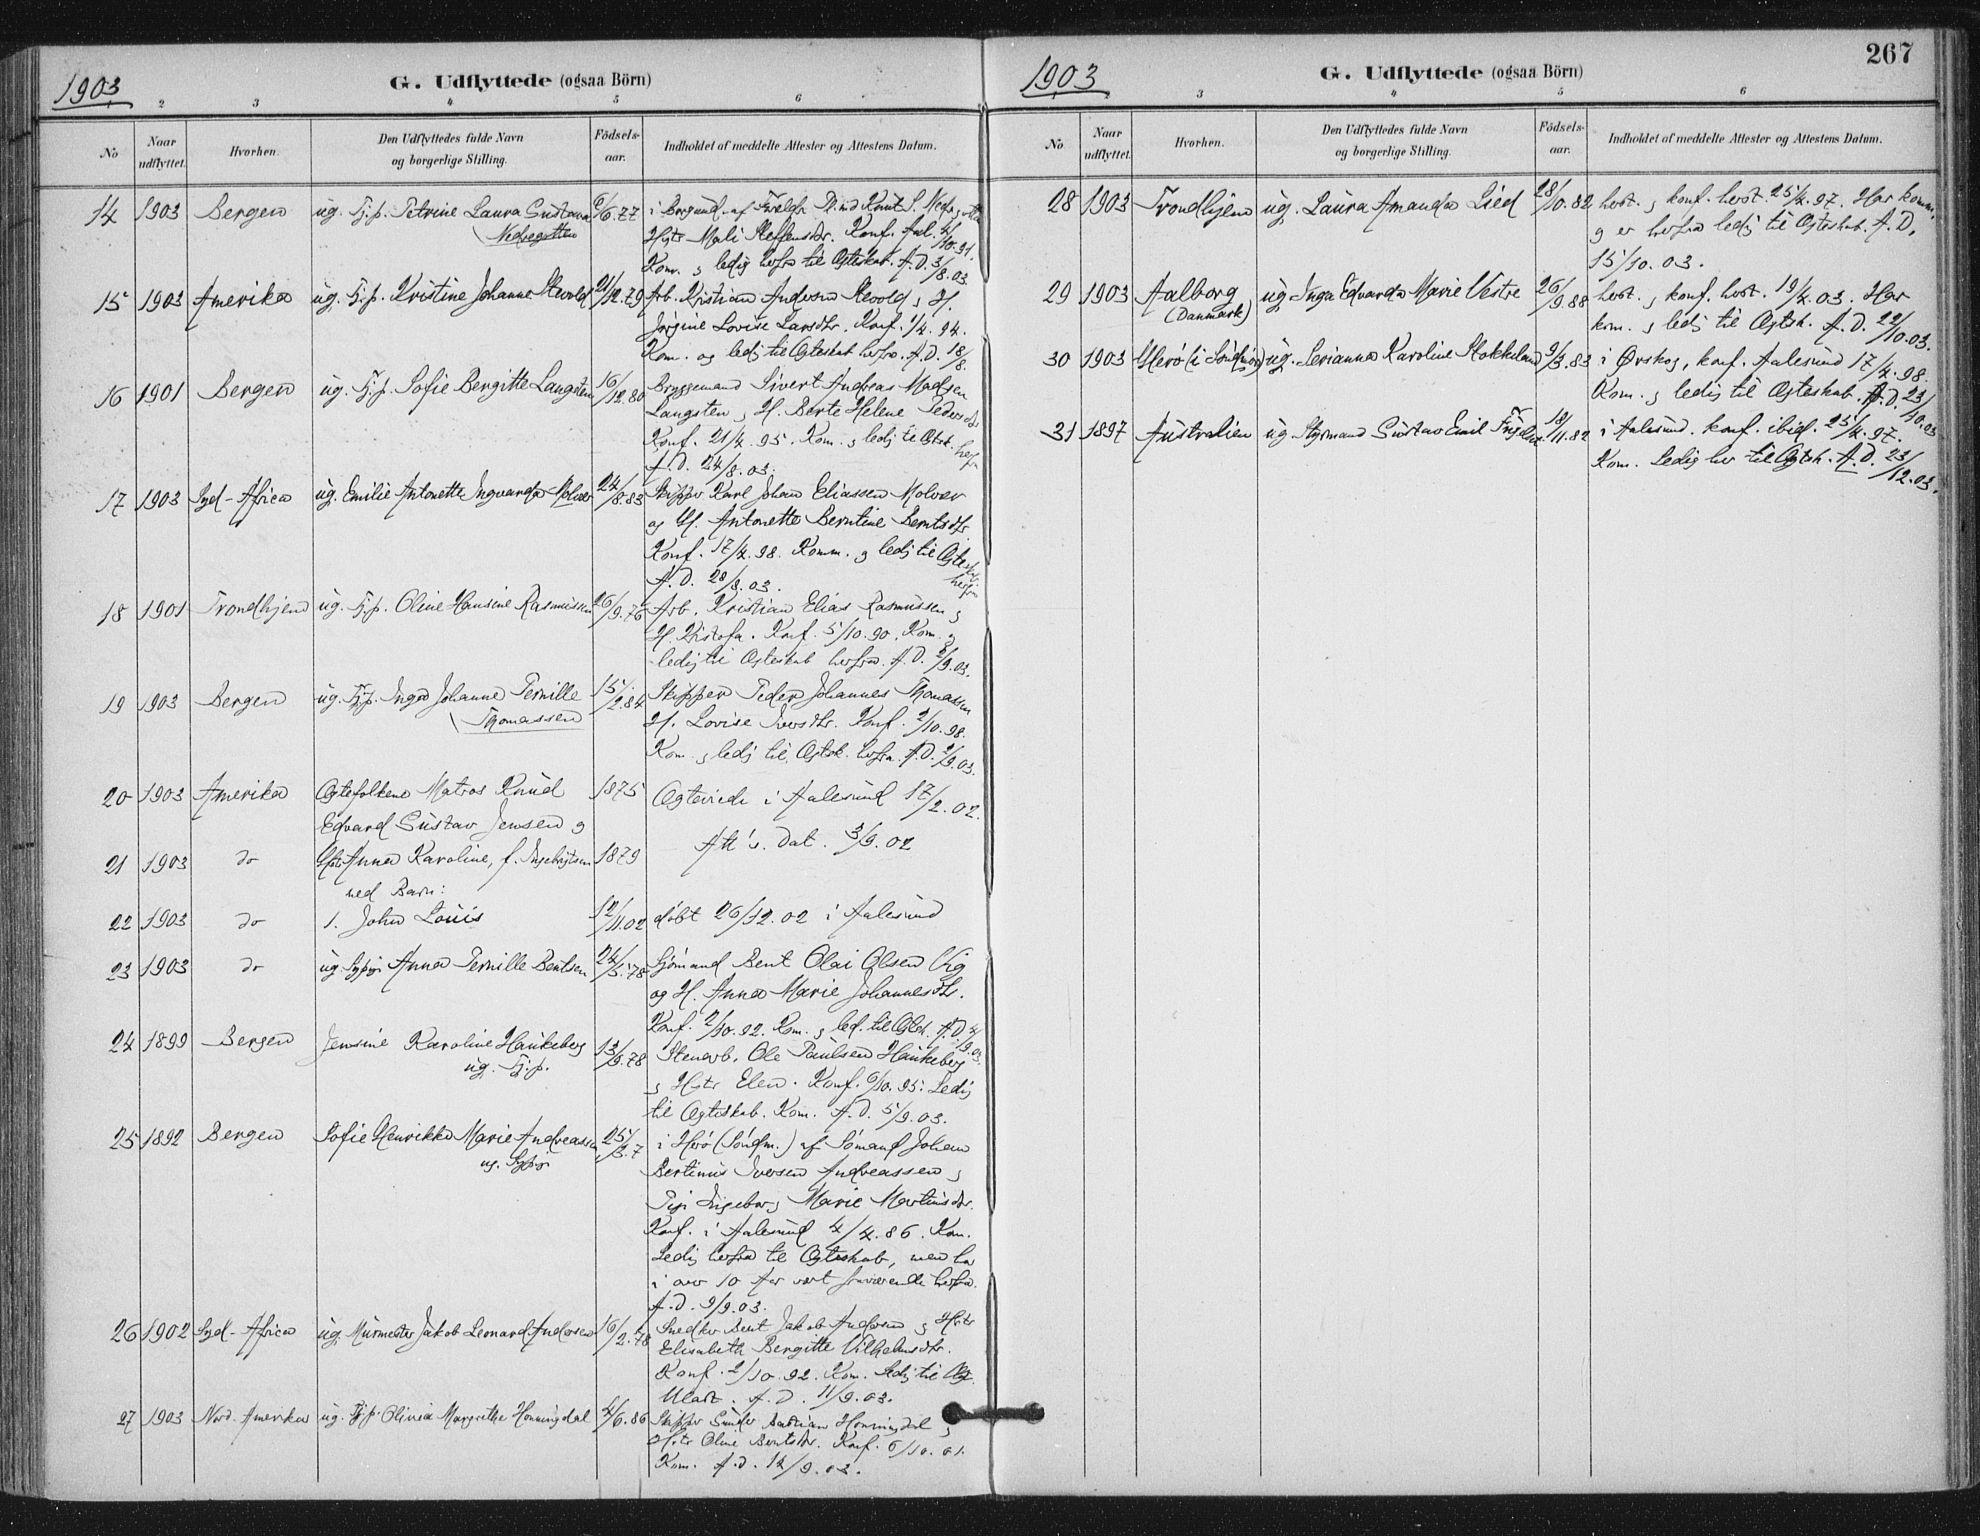 1903
G. Udflyttede (ogsaa Börn)
2 3 4 5 6
No
Naar udflyttet.
Hvorhen.
Den Udflyttedes fulde Navn og borgerlige Stilling.
Födsels-aar.
Indholdet af meddelte Attester og Attestens Datum.
14 1903 Bergen ug. Tj.p. Petrine Laura Gustava 6/6.77
Nedregotten
Kom. og ledig herfra til Ægteskab. A.D. 3/8.03
15 1903 Amerika ug. Tj.p. Kristine Johanne Stevold 21/12.79 Arb. Kristian Andersen Stevold, H.
Jörgine Lovise Larsdtr. Konf. 1/4.94.
Kom. og ledig til Ægteskab herfra. A.D. 18/8.
16 1901 Bergen ug. Tj.p. Sofie Bergitte Langsten 16/12.80 Bryggemand Sivert Andreas Madsen
Langsten, H. Berte Helene Pedersdtr
Konf. 21/4.95. Kom. og ledig til Ægtsk. herfra
A.D. 24/8.03.
17 1903 Syd-Africa ug. Emilie Antonette Ingvarda Molvær 24/8.83 Skipper Karl Johan Eliassen Molvær
og H. Antonette Berntine Berntsdtr.
Konf. 17/4.98. Komm. og ledig til Ægteskab
herfra
A.D. 28/8.03.
18 1901 Trondhjem ug. Tj.p. Oline Hansine Rasmussen 26/9.76 Arb. Kristian Elias Rasmussen og
H. Kristofa. Konf. 5/10.90. Kom. og
ledig til Ægteskab herfra. A.D. 2/9.03.
19 1903 Bergen ug. Tj.p. Inga Johanne Pernille 15/2.84 Skipper Peder Johannes Thomassen
Thomassen H. Lovise Iversdtr. Konf. 2/10.98.
Kom. og ledig til Ægtsk. herfra. A.D. 2/9.03.
20 1903 Amerika Ægtefolkene Matros Knud 1875 Ægteviede i Aalesund 17/2.02.
Edvard Gustav Jensen og
Att's. Dat. 3/9.02
21 1903 do Hstr Anna Karoline, f. Ingebrigtsen 1879
med Barn:
22 1903 do 1. John Louis 12/11.02 döbt 26/12.02 i Aalesund
23 1903 do ug. Sypige Anna Pernille Bentsen 24/5.78 Sjömand Bent Olai Olsen Vig
og H. Anna Marie Johannesdtr.
Konf. 2/10.92. Kom. og led. til Ægtsk. A.D. 4/9.03.
24 1899 Bergen Jensine Karoline Haukeberg 13/9.78 Stenarb. Ole Paulsen Haukeberg
ug. Tj.p. og Hstr Elen. Konf. 6/10.95. Ledig
til Ægteskab. Kom. A.D. 5/9.03.
25 1892 Bergen Sofie Henrikke Marie Andreassen 25/3.7
ug. Sypige i Herö (Söndm.) af Sömand Johan
Bertinus Iversen Andreassen og
Pige Ingeborg Marie Martinsdtr.
Konf. i Aalesund 4/4.86. Kom.
Ledig herfra til Ægteskab, men har
i over 10 Aar vært fraværende herfra.
A.D. 9/9.03.
26 1902 Syd-Africa ug. Murmester Jakob Leonard Andersen 16/2.78 Snedker Bent Jakob Andersen og Hstr
Elisabeth Bergitte Vilhelmsdtr.
Konf. 2/10.92. Kom. Ledig til Ægt.
A.D. 11/9.03.
27 1903 Nord-Amerika ug. Tj.p. Olivia Margrethe Honningdal 4/6.86 Skipper Honningdal og
Hstr Oline Bentsdtr. Konf. 6/10.01.
Kom. A.D. 12/9.03.
1903
G. Udflyttede (ogsaa Börn)
267
3 4 5 6
No.
Naar udflyttet.
Hvorhen.
Den Udflyttedes fulde Navn og borgerlige Stilling.
Födsels-aar.
Indholdet af meddelte Attester og Attestens Datum.
28 1903 Trondhjem ug. Laura Amanda Lied 28/10.82 herst. og konf. herst. 25/4.97. Har komm.
og er herfra ledig til Ægteskab. A.D.
15/10.03.
29 1903 Aalborg ug. Inga Edvarda Marie Vestre 26/9.88 herst. og konf. herst. 19/4.03. Har
(Danmark) kom. og ledig til Ægtsk. A.D. 22/10.03.
30 1903 Herö (i Söndmör) ug. Serianna Karoline Stokkeland 9/3.83 i Ørskog, konf. Aalesund 17/4.98.
Kom. og ledig til Ægteskab. A.D. 23/10.03
31 1897 Australien ug. Styrmand Gustav Emil 12/11.82 i Aalesund. konf. ibid. 25/4.97.
Kom. Ledig her til Ægtsk. A.D. 23/12.03.